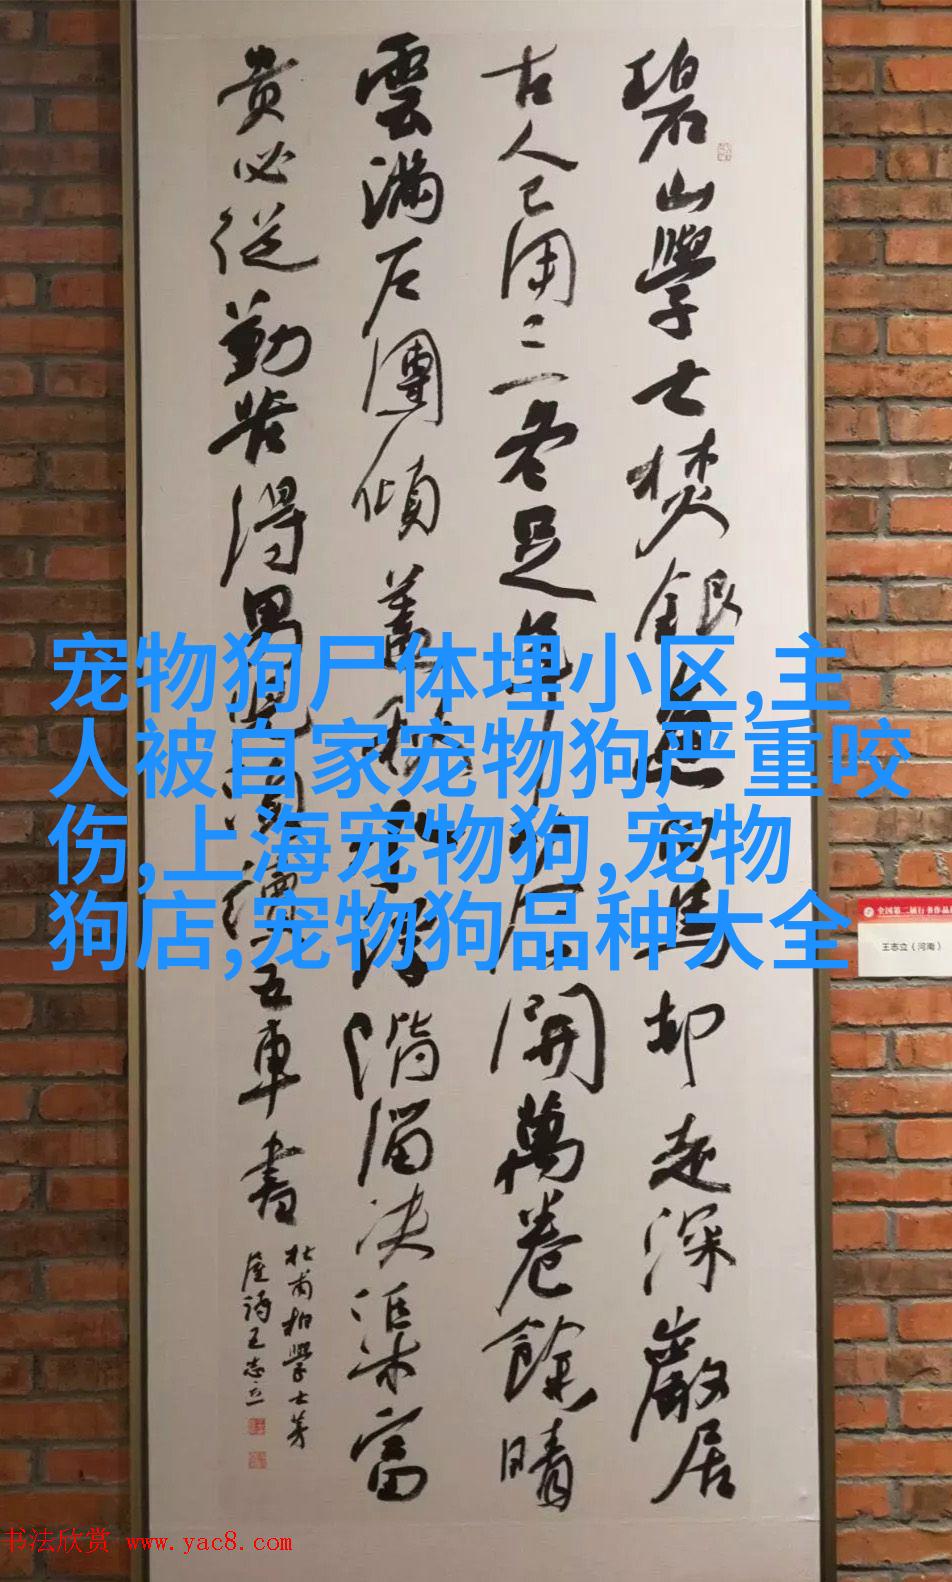 碧山學士焚銀魚白馬却走深巖居
古人已用三冬足年少今開萬卷餘晴
雲滿户團傾蓋秋水浮階溜决渠富
貴必從勤苦得男兒須讀五車書
杜甫柏學士茅
屋詩王志立
宠物狗尸体埋小区,主
人被自家宠物狗严重咬
伤,上海宠物狗,宠物
狗店,宠物狗品种大全
全国第二届行书作品
王志立（河南）
书法欣赏 www.yac8.com